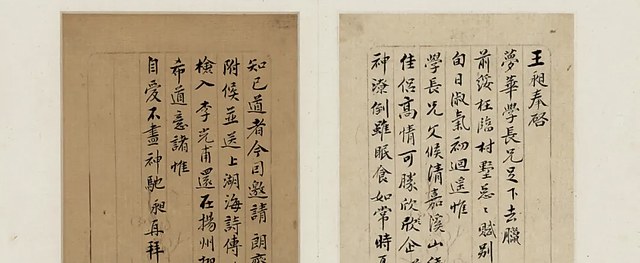 王昶奉啓
夢華學長兄足下去臘
前接枉臨村墅怱〻賦別
旬日淑氣初迴遥惟
學長兄文候清嘉溪山
佳侣髙情可勝欣欣企
神潦倒雖眠食如常時
知已道者今因邀請朗齋
附候並送上湖海詩傳
檢入李光甫還在揚州
希道意諸惟
自愛不盡神馳昶再拜